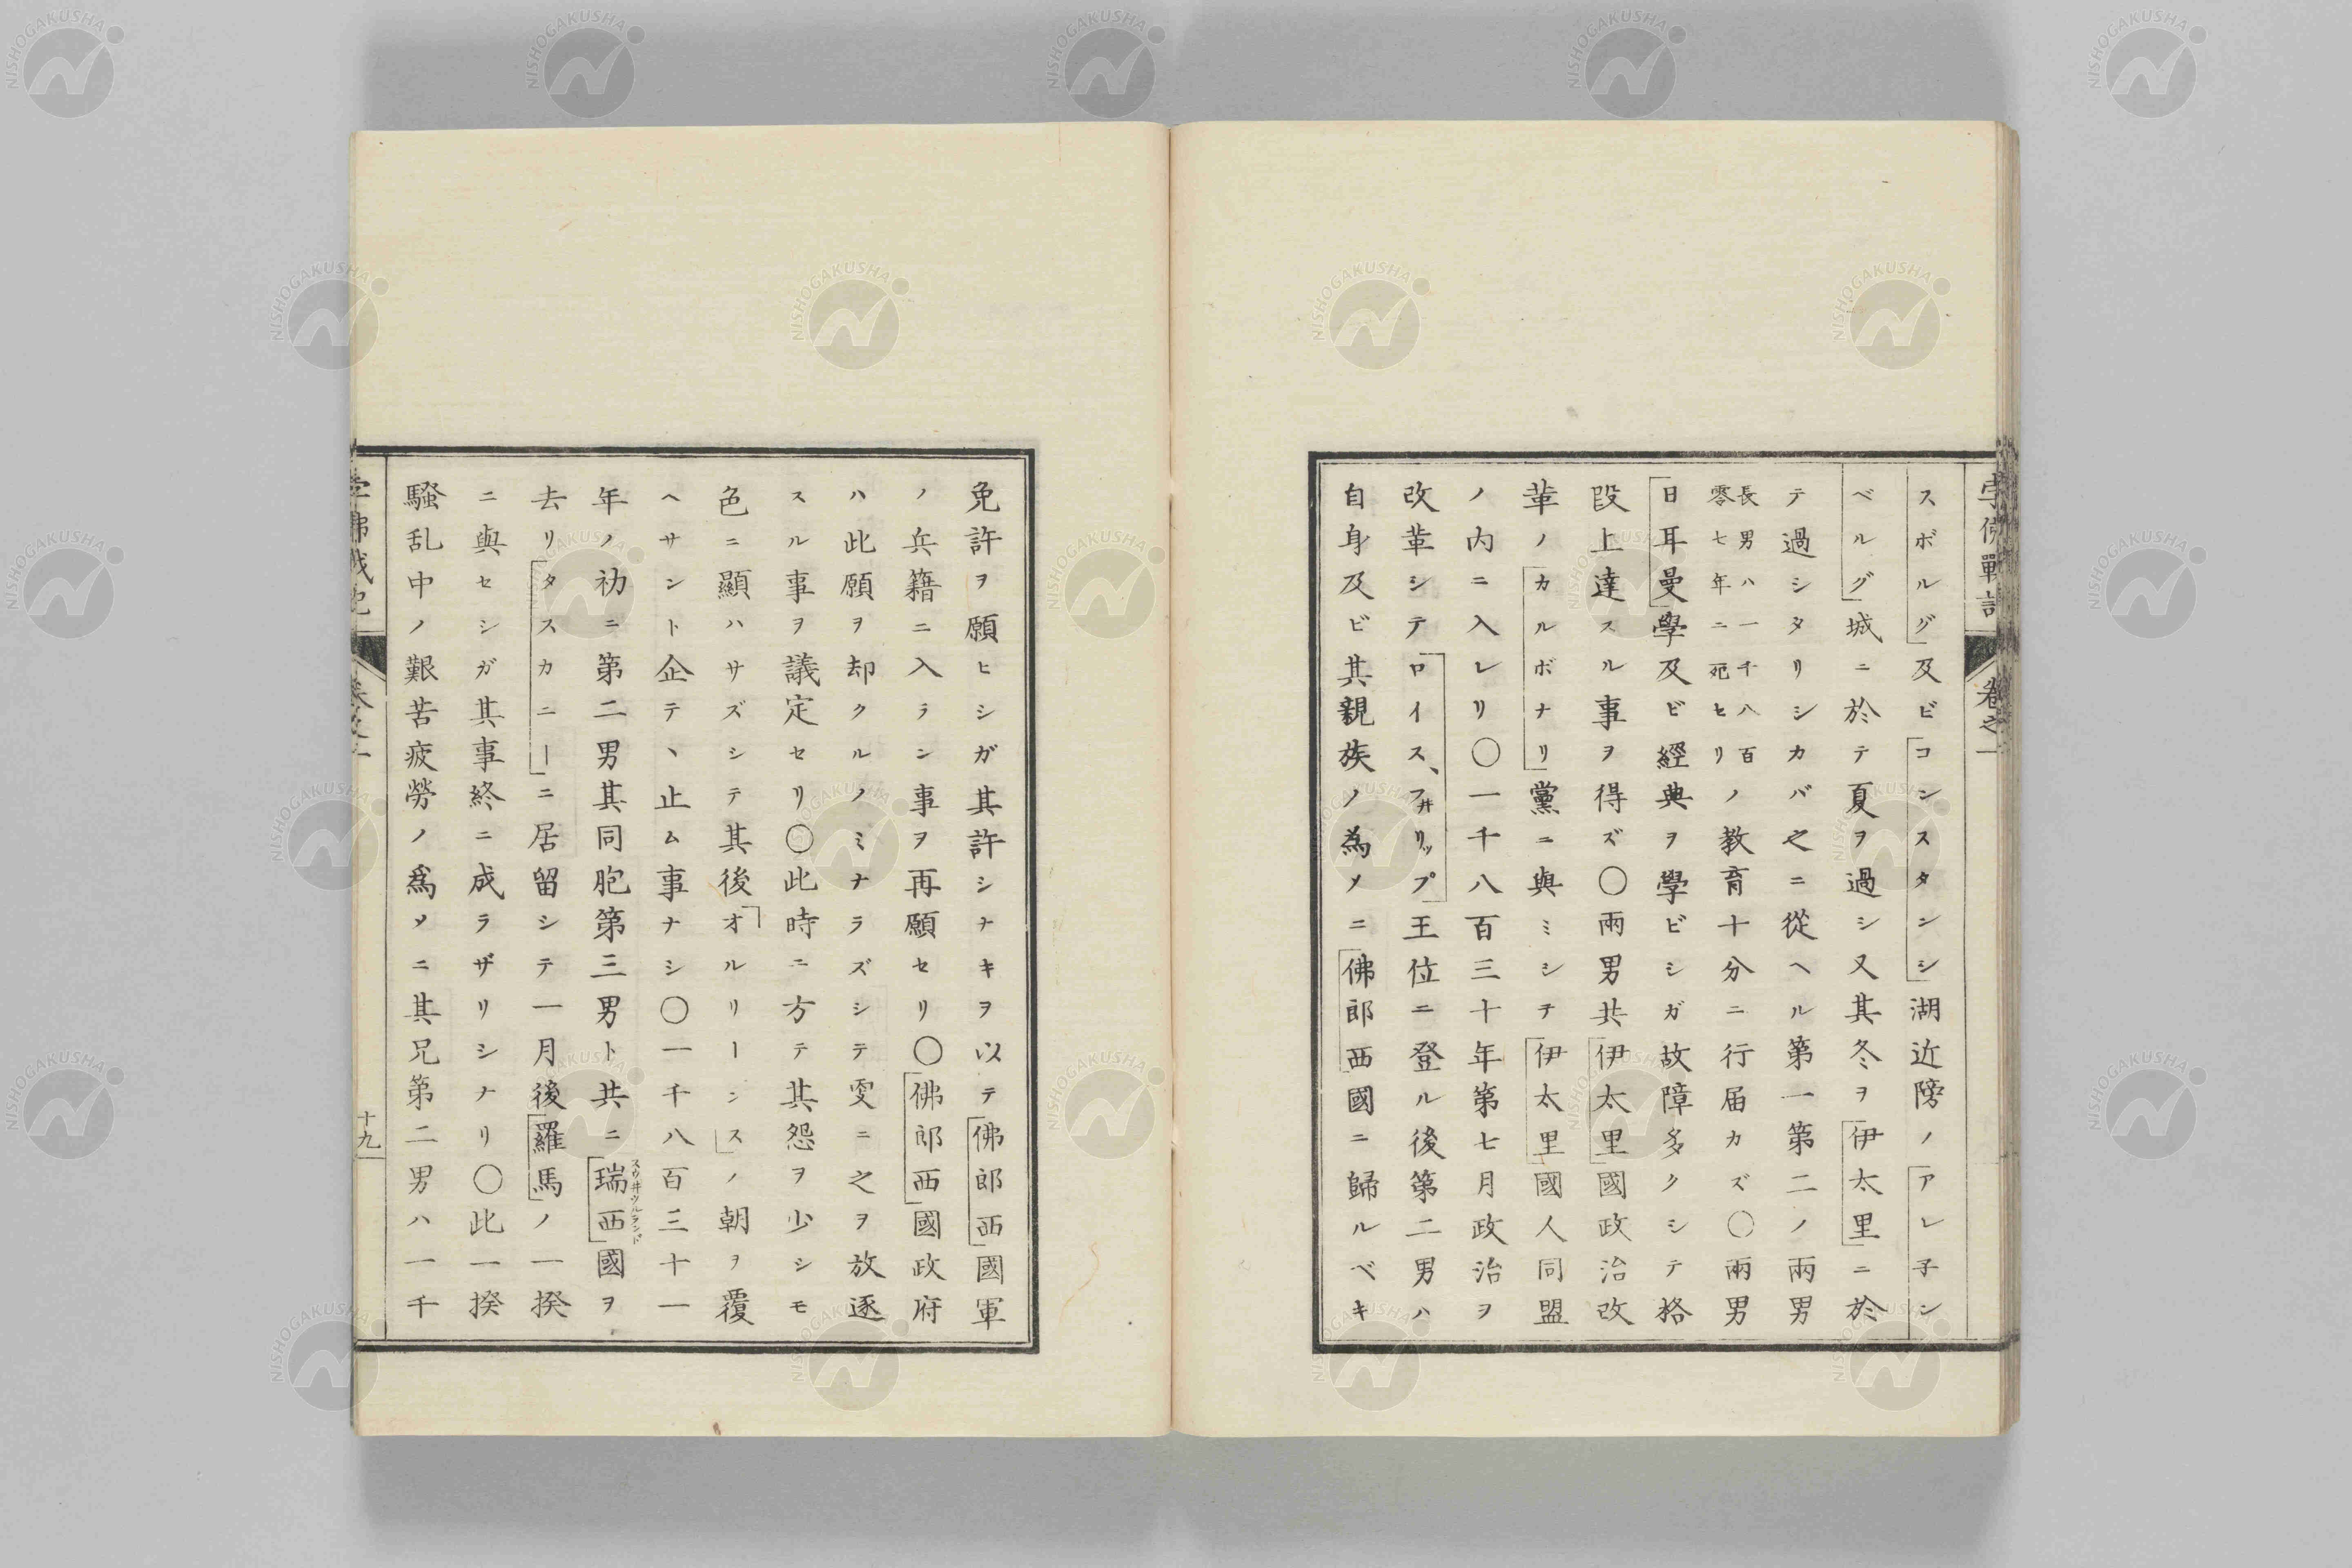 スボルグ及ビコンスタンシ湖近傍ノアレ子シ
ベルグ城ニ於テ夏ヲ過シ又其冬ヲ伊太里ニ於
テ過シタリシカバ之ニ從ヘル第一第二ノ兩男
長男ハ一千八百
零七年ニ死セリ
ノ教育十分ニ行届カズ〇兩男
日耳曼學及ビ經典ヲ學ビシガ故障多クシテ格
段上達スル事ヲ得ズ〇兩男共伊太里國政治改
革ノカルボナリ黨ニ與ミシテ伊太里國人同盟
ノ内ニ入レリ〇一千八百三十年第七月政治ヲ
改革シテロイス、フ井リップ王位ニ登ル後第二男ハ
自身及ビ其親族ノ為メニ佛郎西國ニ歸ルベキ
孛佛戰記 卷之一
免許ヲ願ヒシガ其許シナキヲ以テ佛郎西國軍
ノ兵籍ニ入ラン事ヲ再願セリ〇佛郎西國政府
ハ此願ヲ却クルノミナラズシテ雯ニ之ヲ放逐
スル事ヲ議定セリ〇此時ニ方テ其怨ヲ少シモ
色ニ顯ハサズシテ其後オルリーンスノ朝ヲ覆
ヘサント企テ、止ム事ナシ〇一千八百三十一
年ノ初ニ第二男其同胞第三男ト共ニ瑞西國ヲ
スウ井ツルランド
去リタスカニーニ居留シテ一月後羅馬ノ一揆
ニ與セシガ其事終ニ成ラザリシナリ〇此一揆
騷乱中ノ艱苦疲勞ノ爲メニ其兄第二男ハ一千
孛佛戰記 卷之一 十九
NISHOGAKUSHA